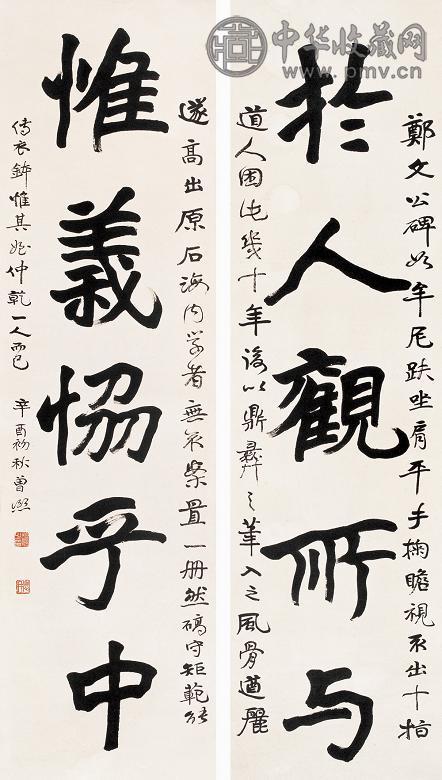 中华收藏网
www.pmv.cn
鄭文公碑如牟尼趺坐肩平手掬瞻視不出十指
於人觀所与
道人困此幾十年後以鼎彝之筆入之風骨遒麗
遂高出原石海内学者無不案置一册然确守矩範能
惟義協乎中
傳衣鉢惟其姪仲乾一人而已 辛酉初秋曾熙